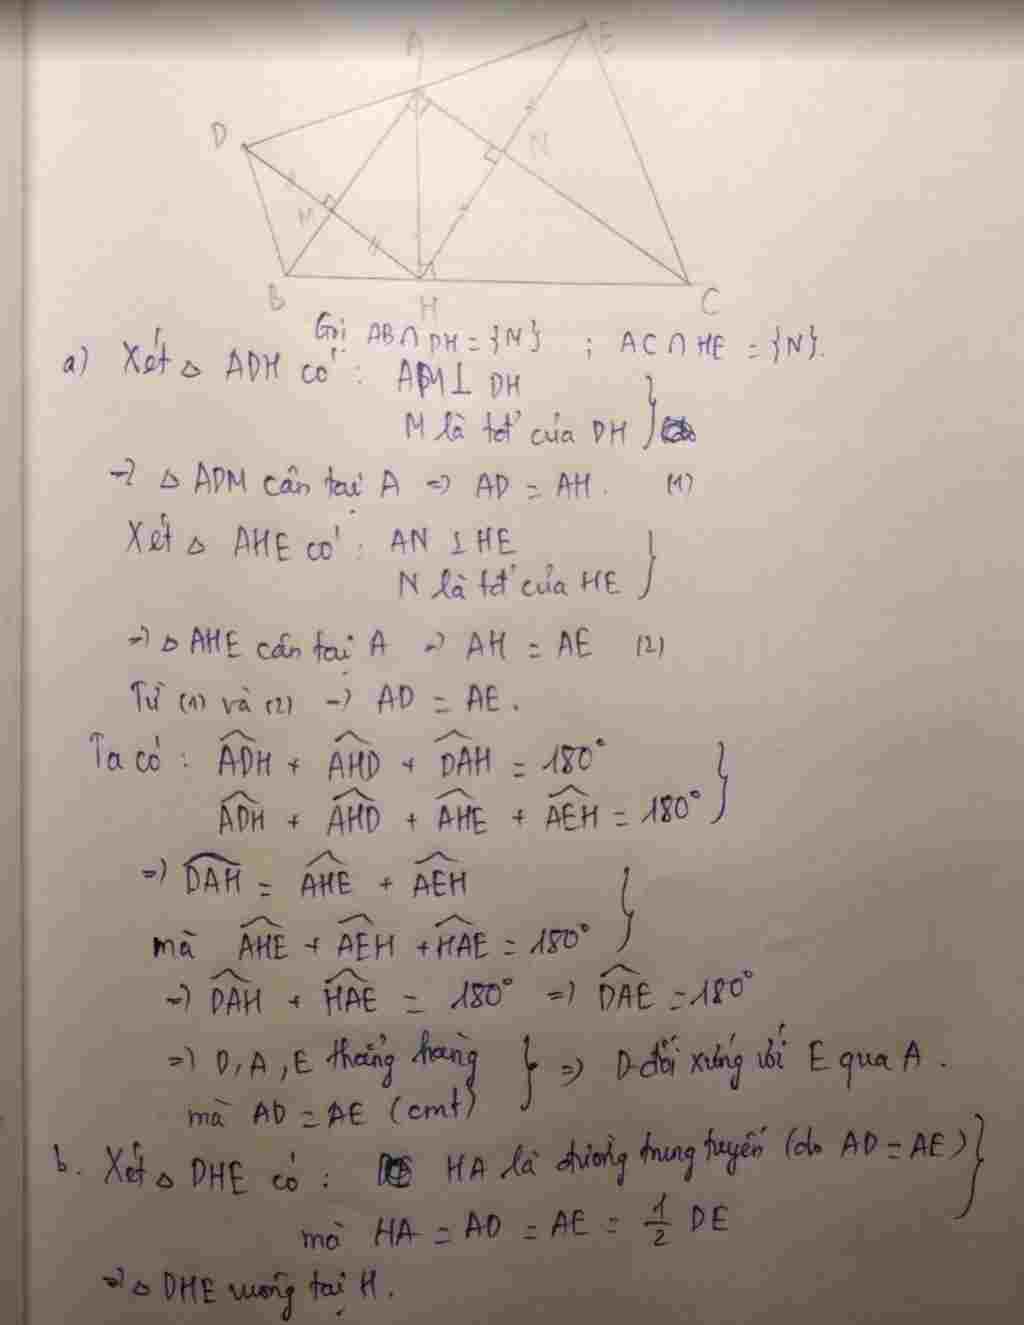 A
E
D
N
M
B
H
C
Gọi AB ∩ DH = {M} ; AC ∩ HE = {N}.
a) Xét △ ADH có : AM ⊥ DH
M là tđ của DH
=> △ ADM cân tại A => AD = AH. (1)
Xét △ AHE có : AN ⊥ HE
N là tđ của HE
=> △ AHE cân tại A => AH = AE (2)
Từ (1) và (2) => AD = AE.
Ta có : ADH + AHD + DAH = 180°
ADH + AHD + AHE + AEH = 180°
=> DAH = AHE + AEH
mà AHE + AEH + HAE = 180°
=> DAH + HAE = 180° => DAE = 180°
=> D, A, E thẳng hàng
mà AD = AE (cmt) => D đối xứng với E qua A.
b. Xét △ DHE có : HA là đường trung tuyến (do AD = AE)
mà HA = AD = AE = 1/2 DE
=> △ DHE vuông tại H.